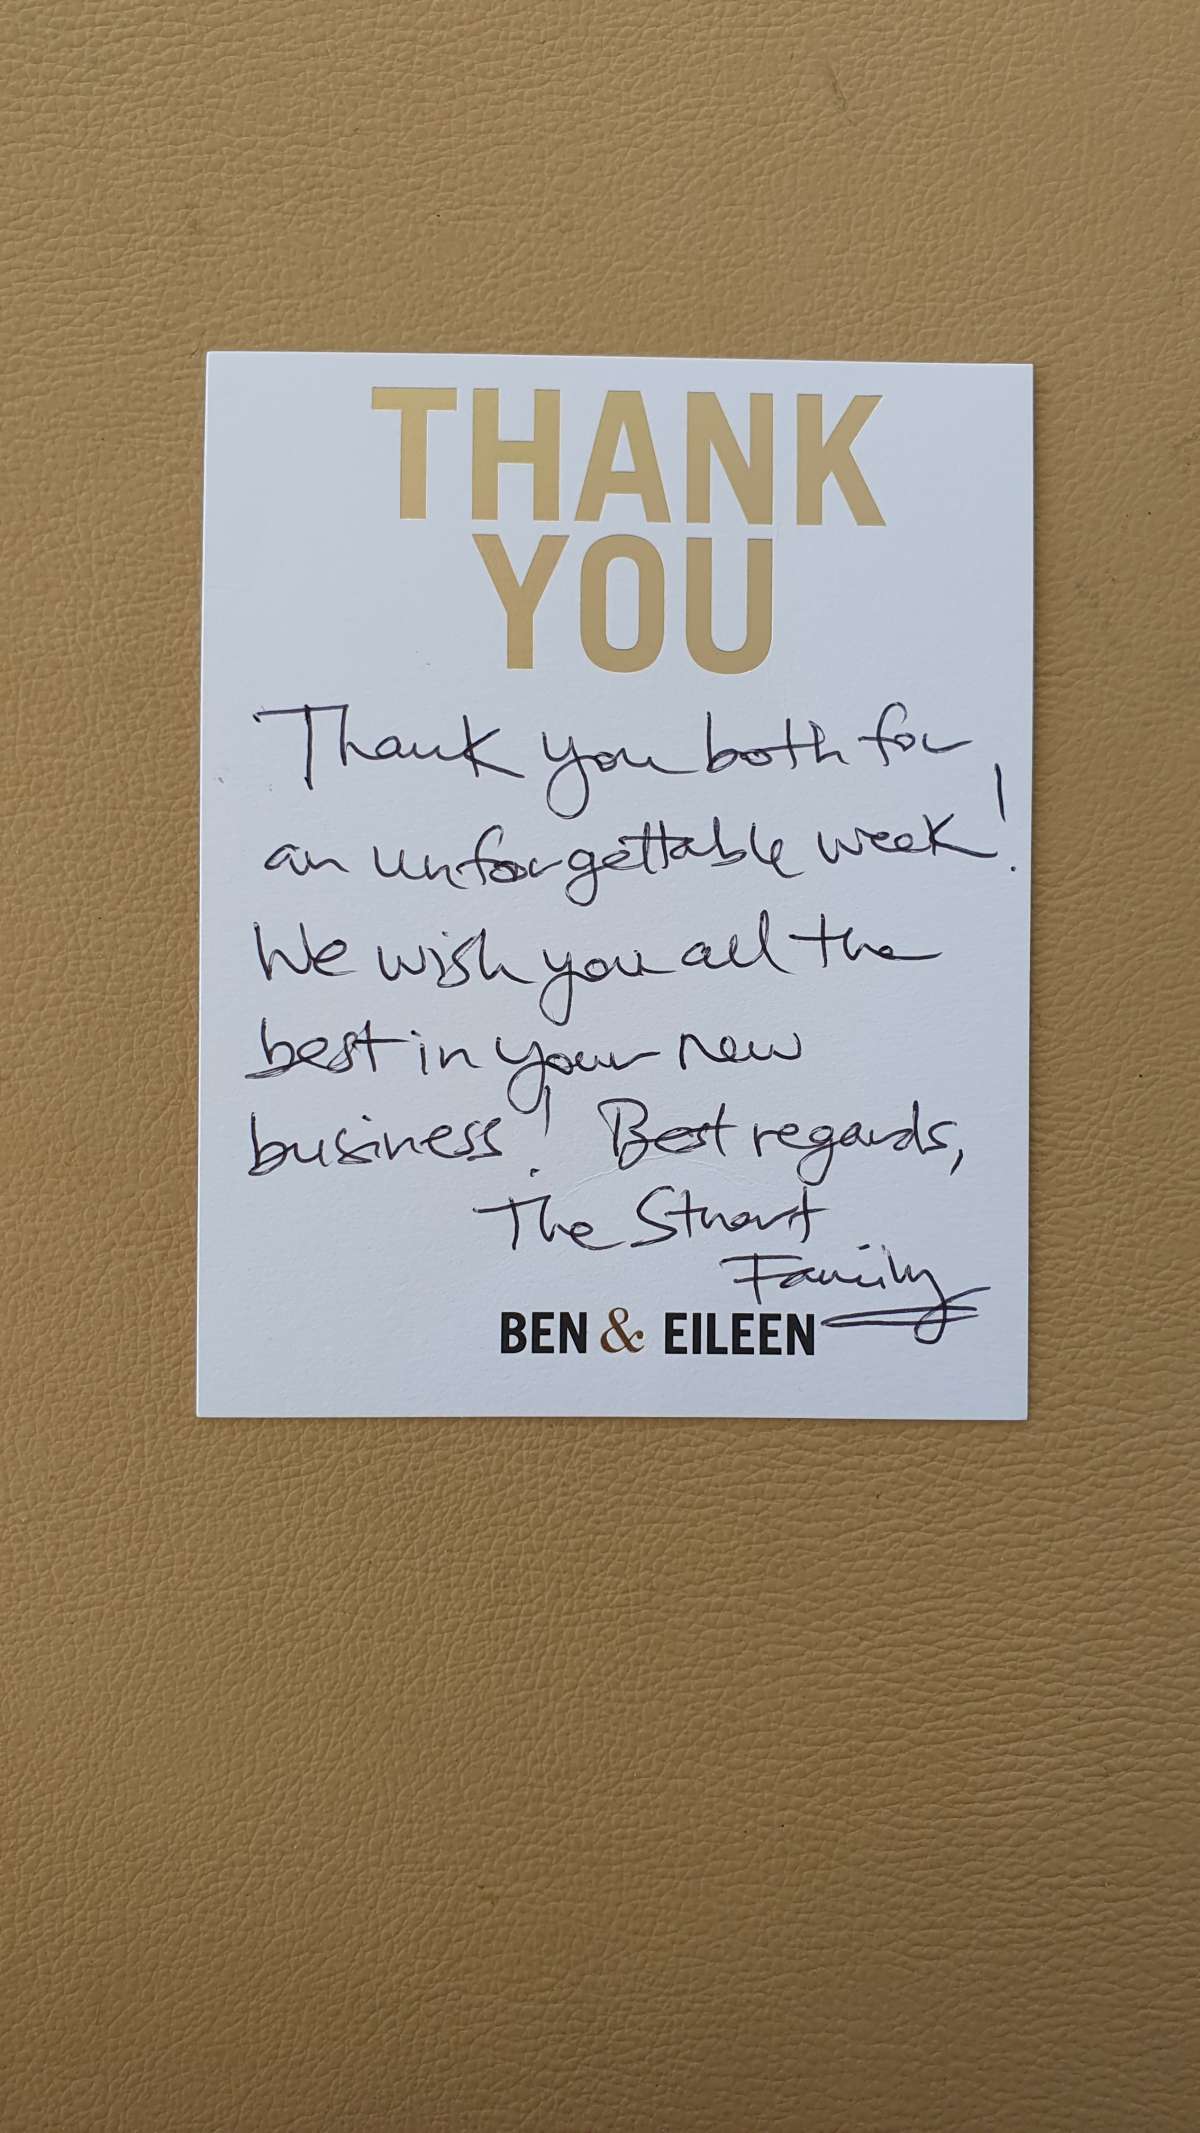 THANK
YOU
Thank you both for
an unforgettable week!
We wish you all the
best in your new
business! Best regards,
The Stuart
Family
BEN & EILEEN